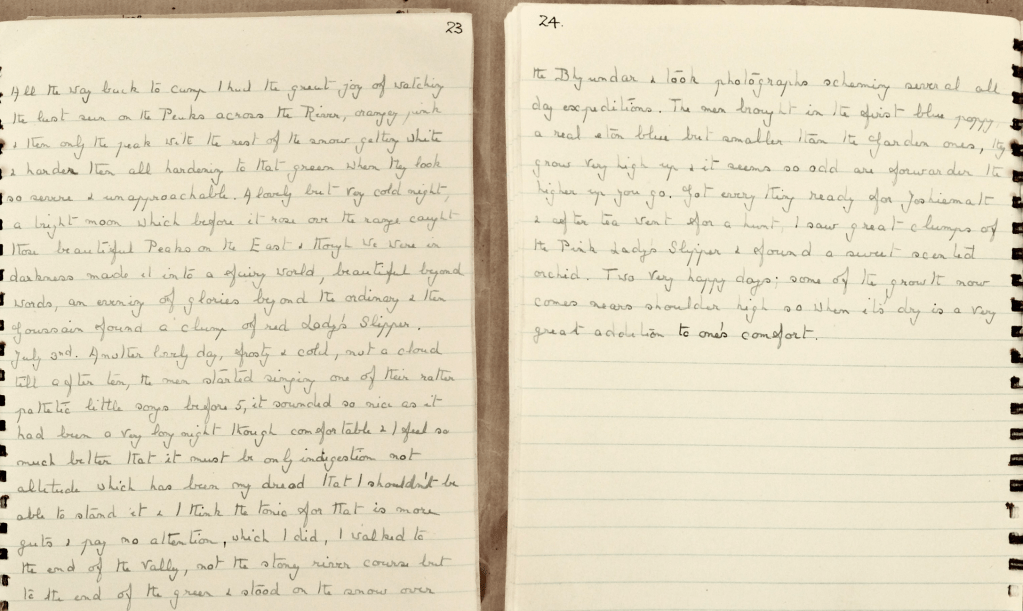 23
All the way back to camp I had the great joy of watching
the last sun on the Peaks across the River, orangey pink
& then only the peak with the rest of the snow getting white
& harder then all hardening to that green when they look
so severe & unapproachable. A lovely but very cold night,
a bright moon which before it rose over the range caught
those beautiful Peaks on the East & though we were in
darkness made it into a fairy world, beautiful beyond
words, an evening of glories beyond the ordinary & then
found a clump of red Lady's Slipper.
July 3rd. Another lovely day, frosty & cold, not a cloud
till after ten, the men started singing one of their rather
pathetic little songs before 5, it sounded so nice as it
had been a very long night though comfortable & I feel so
much better that it must be only indigestion not
altitude which has been my dread that I shouldn't be
able to stand it & I think the tonic for that is more
guts & pay no attention, which I did, I walked to
the end of the Vally, not the stony river course but
to the end of the green & stood on the snow over
24.
the Bhyundar & took photographs scheming several all
day expeditions. The men brought in the first blue poppy
a real eton blue but smaller than the Garden ones, they
grow very high up & it seems so odd are forwarder the
higher up you go. Got every thing ready for Joshiemalt
& after tea went for a hunt, I saw great clumps of
the Pink Ladys Slipper & found a sweet scented
orchid. Two very happy days; some of the growth now
comes nears shoulder high so when its dry is a very
great addition to one's comfort.